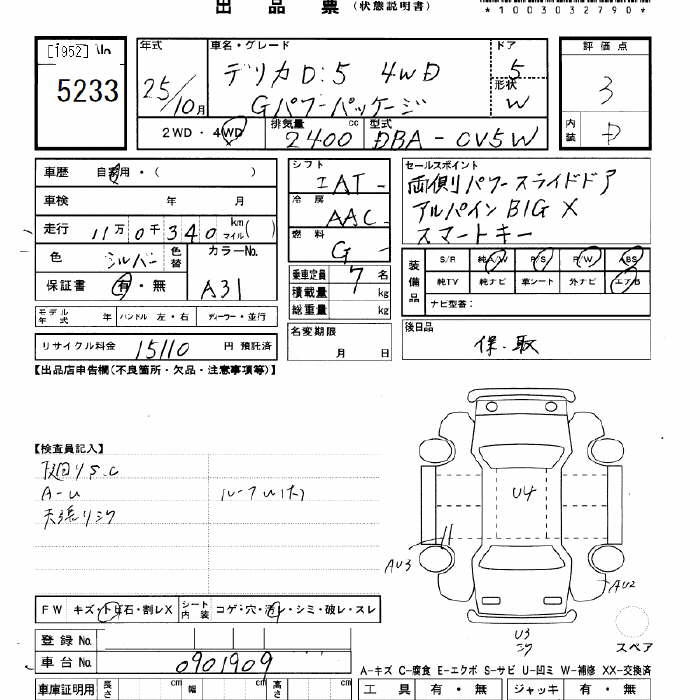 出品票(状態説明書)
*1003032790*
[1952]
5233
年式
25/10月
車名・グレード
デリカD:5 4WD
Gパワーパッケージ
ドア
5
形状
W
2WD・4WD
排気量 cc
2400
型式
DBA-CV5W
評価点
3
内装
D
車歴 自家用・( )
車検 年 月
走行 11万0千340 km マイル( )
色 シルバー 色替
カラーNo.
A31
保証書 有・無
モデル年式 年 ハンドル 左・右 ディーラー・並行
リサイクル料金 15110 円 預託済
シフト
IAT
冷房
AAC
燃料
G
乗車定員 7 名
積載量 kg
総重量 kg
名変期限
月 日
セールスポイント
両側パワースライドドア
アルパインBIG X
スマートキー
装備品
S/R 純A/W P/S P/W ABS
純TV 純ナビ 革シート 外ナビ エアB
ナビ型番:
後日品
保・取
【出品店申告欄(不良箇所・欠品・注意事項等)】
【検査員記入】
A-U
U4
AU3
AU2
U3
スペア
FW キズ・トビ石・割レX シート内装 コゲ・穴・汚レ・シミ・破レ・スレ
登録No.
車台No. 0901909
A-キズ C-腐食 E-エクボ S-サビ U-凹ミ W-補修 XX-交換済
車庫証明用 長さ cm 幅 cm 高さ cm
工具 有・無 ジャッキ 有・無